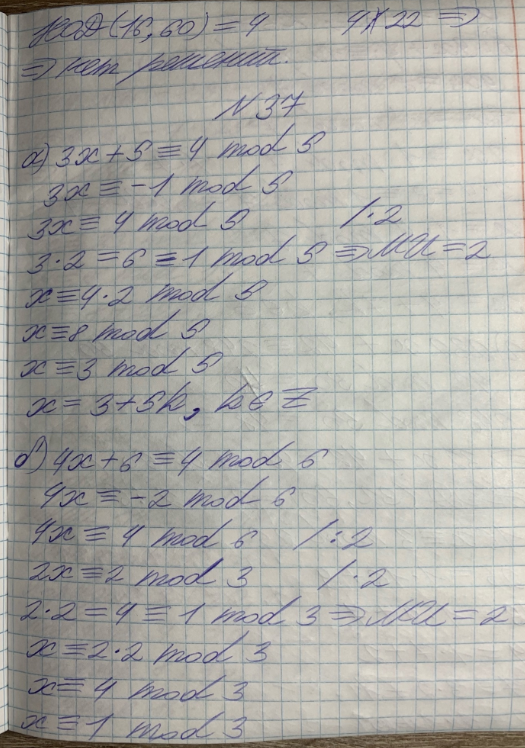 НОД(16,60)=4 4∤22 =>
=> нет решений.
N37
а) 3x+5≡4 mod 5
3x≡-1 mod 5
3x≡4 mod 5 /·2
3·2=6≡1 mod 5 => МИ=2
x≡4·2 mod 5
x≡8 mod 5
x≡3 mod 5
x=3+5k, k∈Z
б) 4x+6≡4 mod 6
4x≡-2 mod 6
4x≡4 mod 6 /:2
2x≡2 mod 3 /·2
2·2=4≡1 mod 3 => МИ=2
x≡2·2 mod 3
x≡4 mod 3
x≡1 mod 3